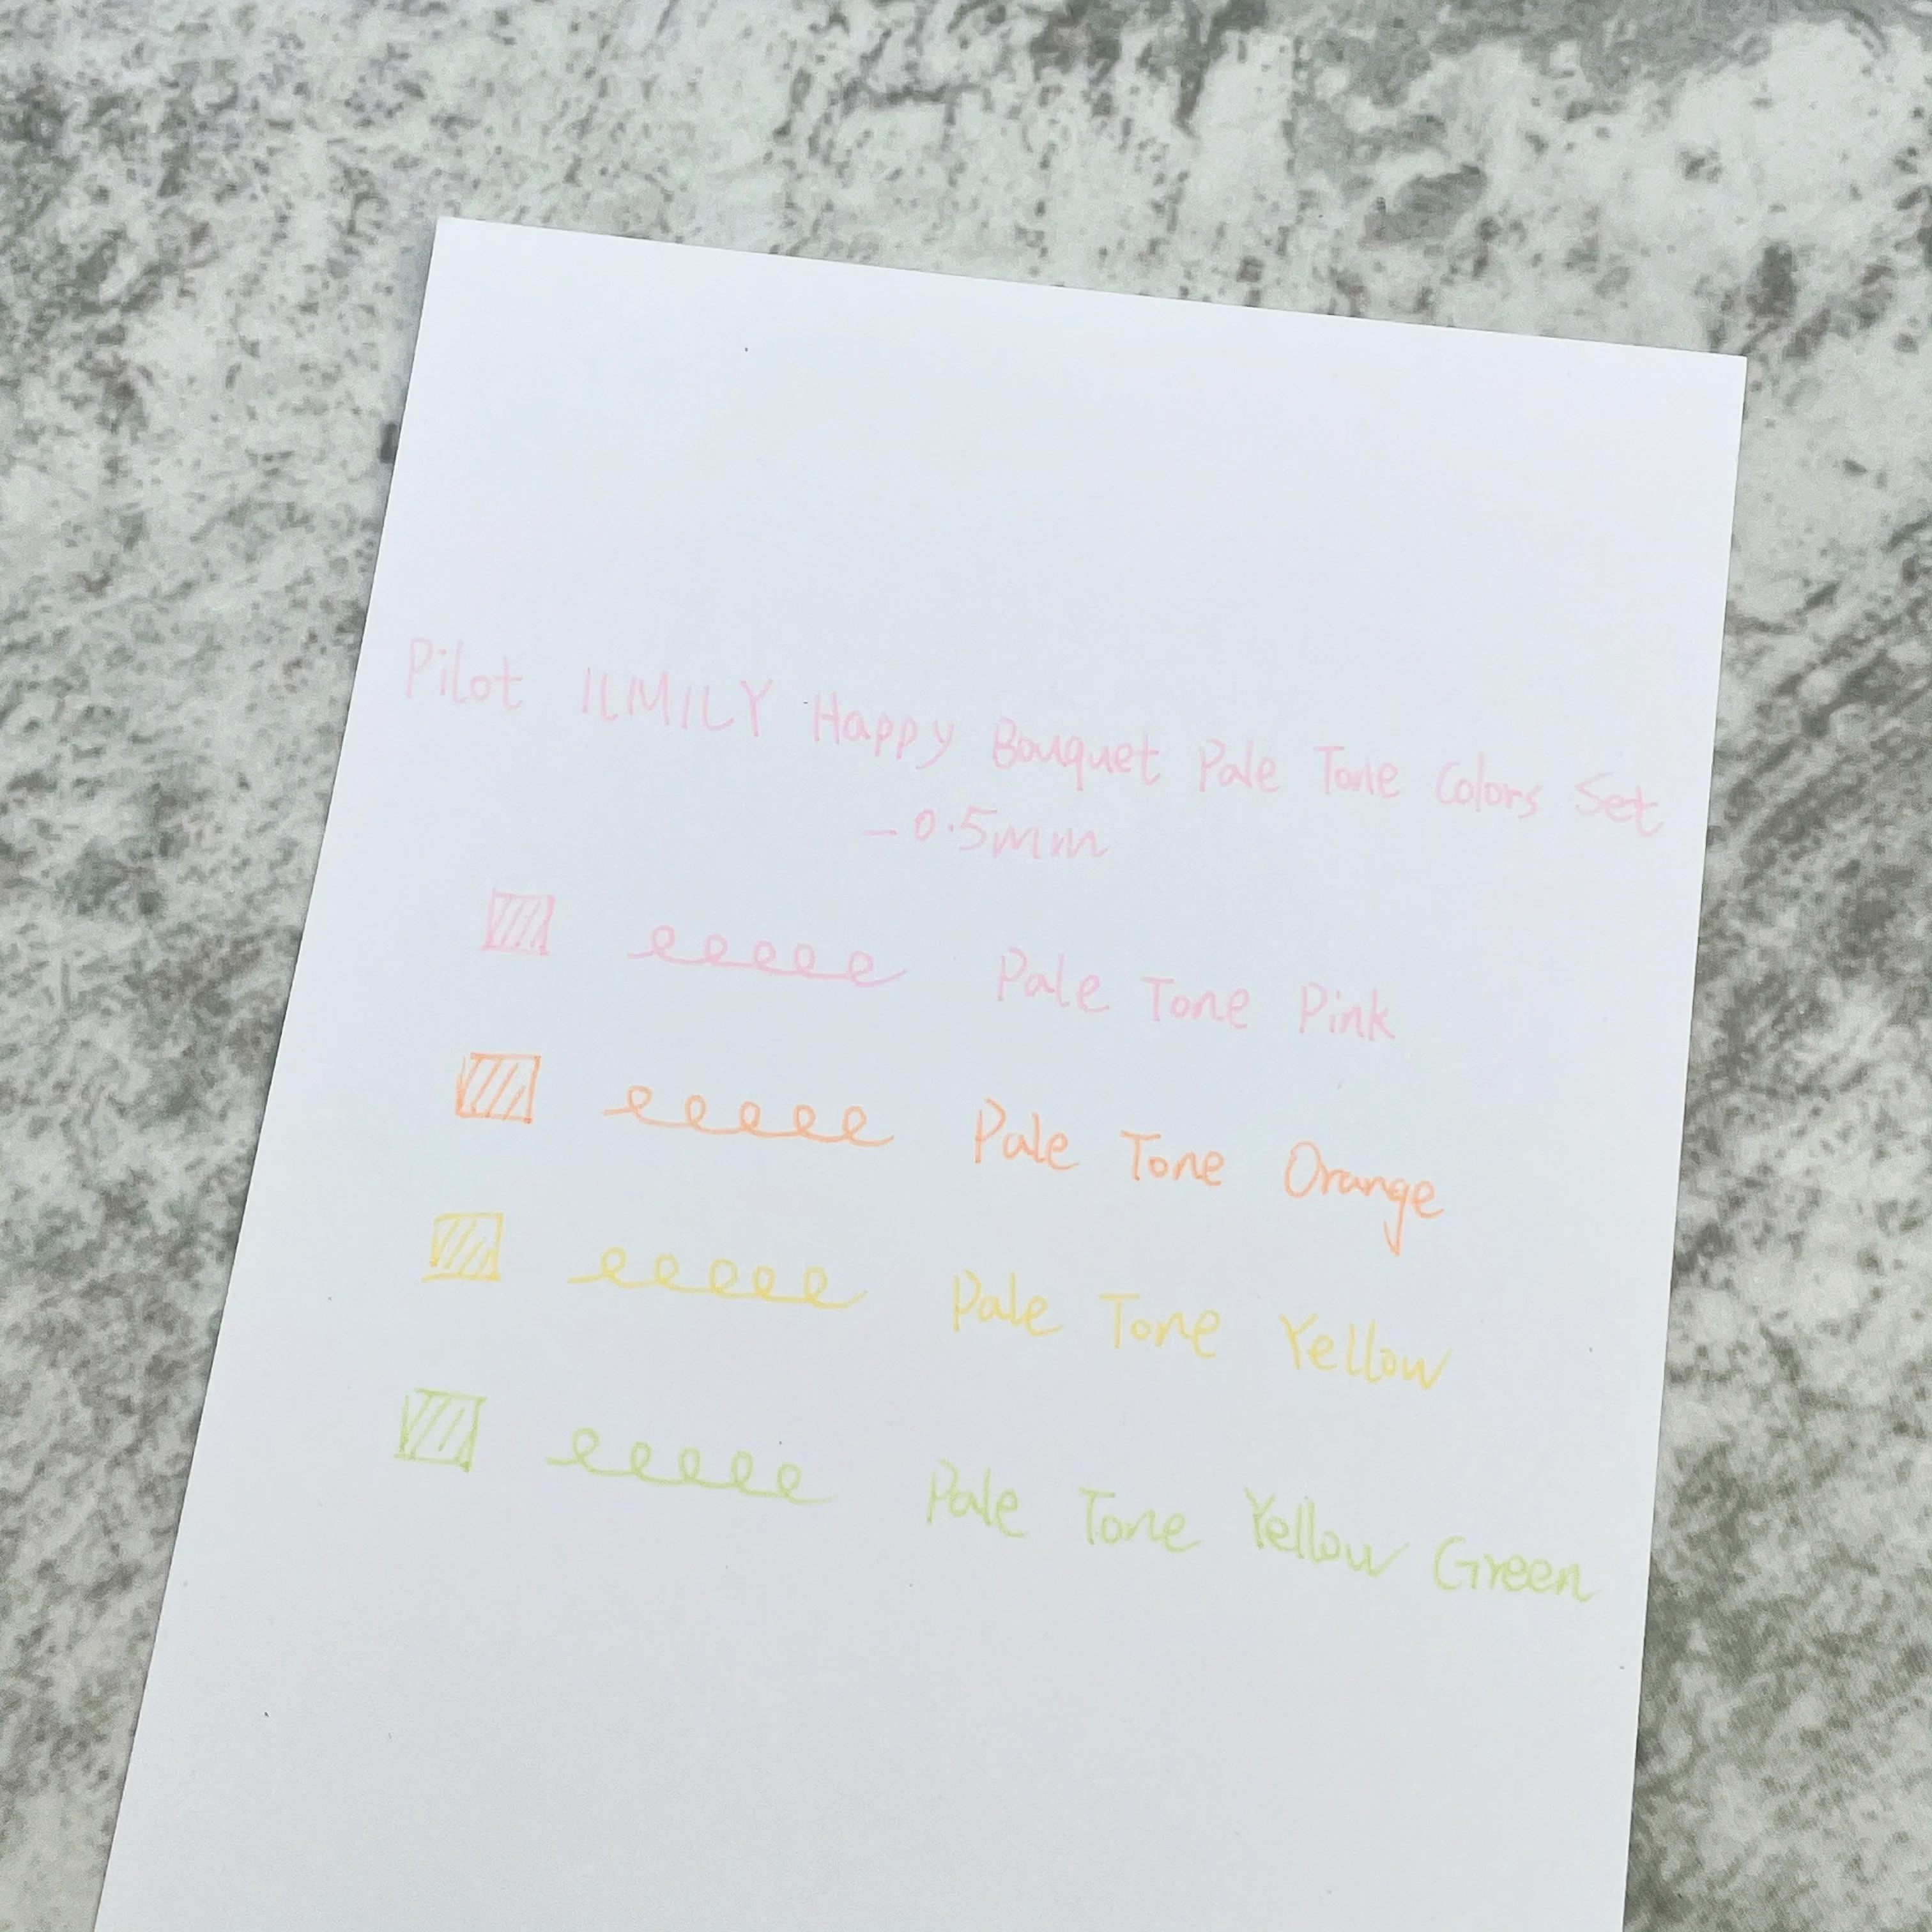 Pilot ILMILY Happy Bouquet Pale Tone Colors Set
-0.5mm
eeeee Pale Tone Pink
eeeee Pale Tone Orange
eeeee Pale Tone Yellow
eeeee Pale Tone Yellow Green